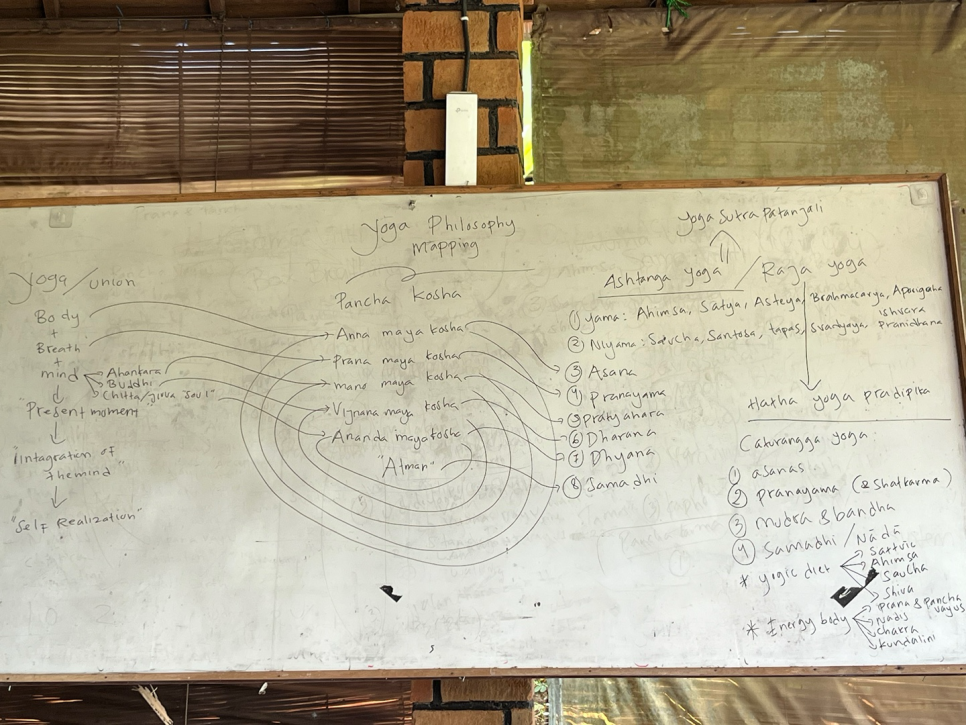 Yoga Philosophy
mapping
Yoga Sutra Patanjali
Yoga/union
Body
+
Breath
+
mind
Ahankara
Buddhi
Chitta/jiova "soul"
"Present moment
"Intagration of
themind"
"Self Realization"
Pancha kosha
Anna maya kosha
Prana maya kosha
mano maya kosha
Vignana maya kosha
Ananda mayakosha
"Atman"
Ashtanga yoga / Raja yoga
① yama: Ahimsa, Satya, Asteya, Brahmacarya, Aparigraha
② Niyama: Saucha, Santosa, tapas, svadyaya, ishvara
Pranidhana
③ Asana
④ Pranayama
⑤ pratyahara
⑥ Dharana
⑦ Dhyana
⑧ Samadhi
Hatha yoga pradipika
Caturangga yoga
① asanas
② pranayama (& Shatkarma)
③ mudra & bandha
④ Samadhi / Nādā
* yogic diet
Sattvic
Ahimsa
Saucha
Shiva
* Energy body
Prana & Pancha
vayus
nadis
chakra
kundalini